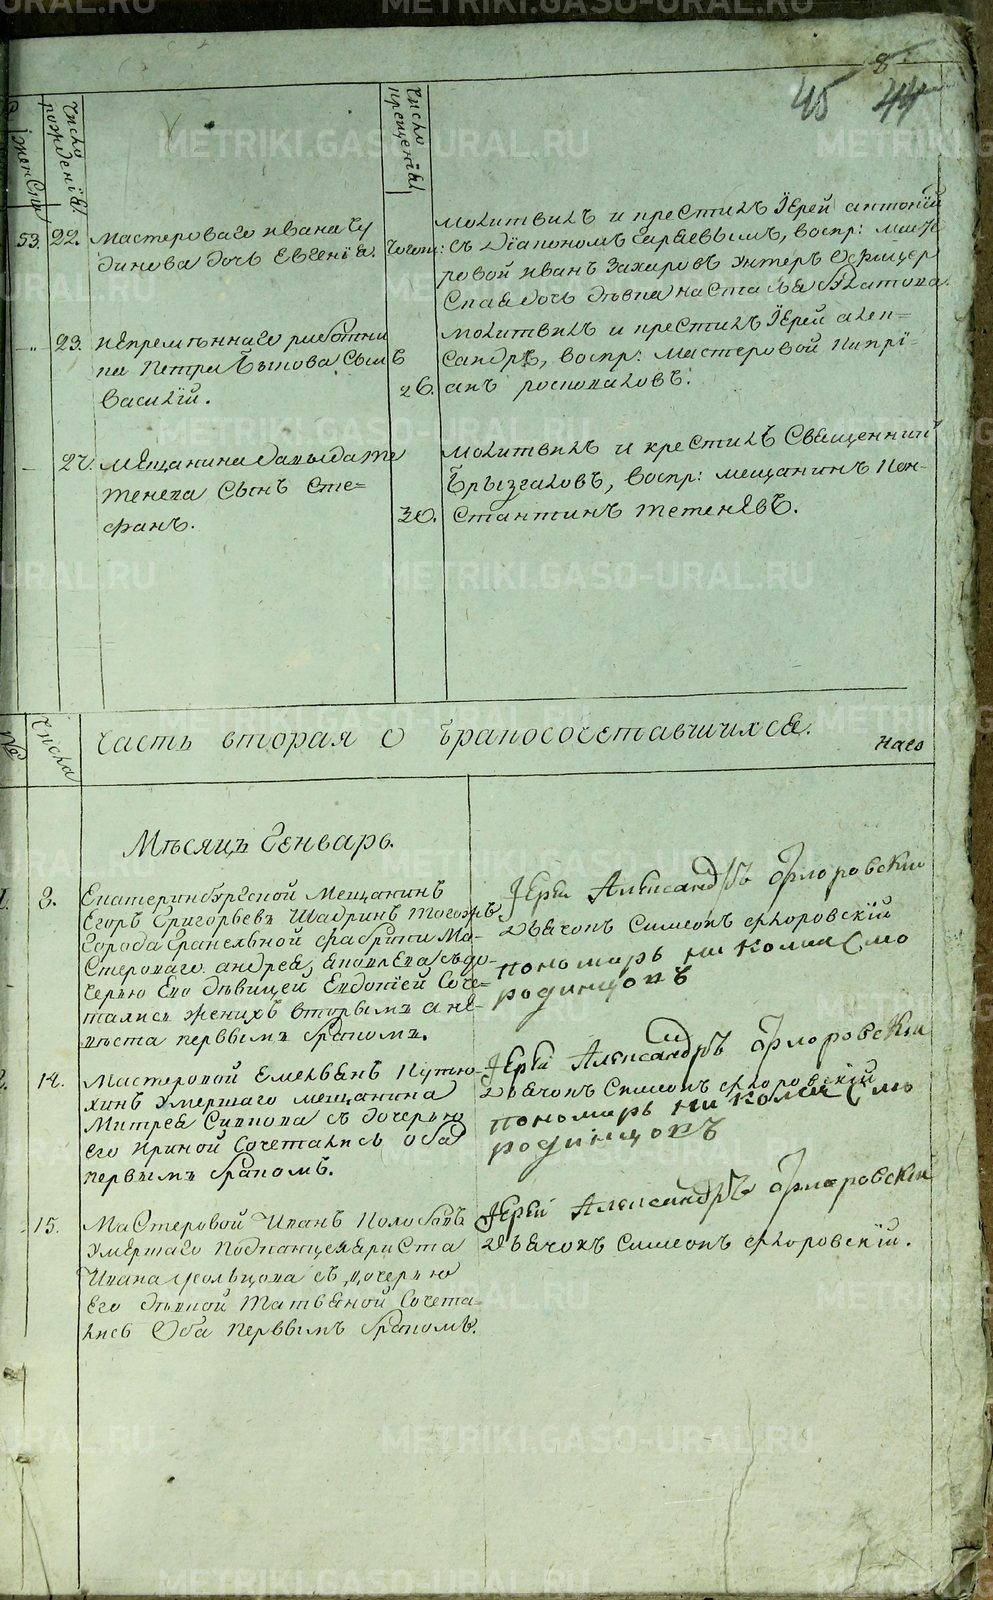 8
45 44
Женска
Число рожденїѧ
Число крещенїѧ
53. 22. Мастероваго Ивана Чу
динова дочь Евгенїа.
молитвилъ и крестилъ Їерей антонїй
съ Дїакономъ Сараевымъ, воспр: масте
ровой иванъ Захаровъ Унтеръ Офицер
ская дочь дѣвка настасья Платова
23. непремѣннаго работни
ка Петра Быкова Сынъ
Василїй.
26.
молитвилъ и крестилъ Їерей алек=
сандръ, воспр: мастеровой Кипрї=
анъ роспоповъ.
27. Мещанина давыда те
тенева Сынъ Сте=
фанъ.
30.
молитвилъ и крестилъ Священникъ
Брызгаловъ, воспр: мещанинъ Кон-
стантинъ тетенѣвъ.
№
Числа
Часть вторая о бракосочетавшихся.
Мѣсяцъ Генварь.
1. 8. Екатеринбургской Мещанинъ
Егоръ Григорьевъ Шадринъ тогожъ
города Гранильной фабрики Ма-
стероваго андрея, яковлева съ до-
черью Его дѣвицей Евдокїей Соче=
тались женихъ вторымъ а не-
вѣста первымъ бракомъ.
Їерей Александръ Флоровскїй
Дьячокъ Симеонъ флоровскїй
пономарь Николай Смо
родинцовъ
2. 14. Мастеровой Емельянъ Путю
хинъ умершаго мещанина
Митрея с дочерью
его Ириной Сочетались оба
первымъ бракомъ.
Їерей Александръ Флоровскїй
Дьячокъ Симеонъ флоровскїй
пономарь Николай Смо
родинцовъ
15. Мастеровой Иванъ Колобовъ
умершаго Подканцеляриста
Ивана съ дочерью
Его дѣвкой Татьяной Сочета-
лись Оба первымъ бракомъ.
Їерей Александръ Флоровскїй
Дьячокъ Симеонъ флоровскїй.
METRIKI.GASO-URAL.RU